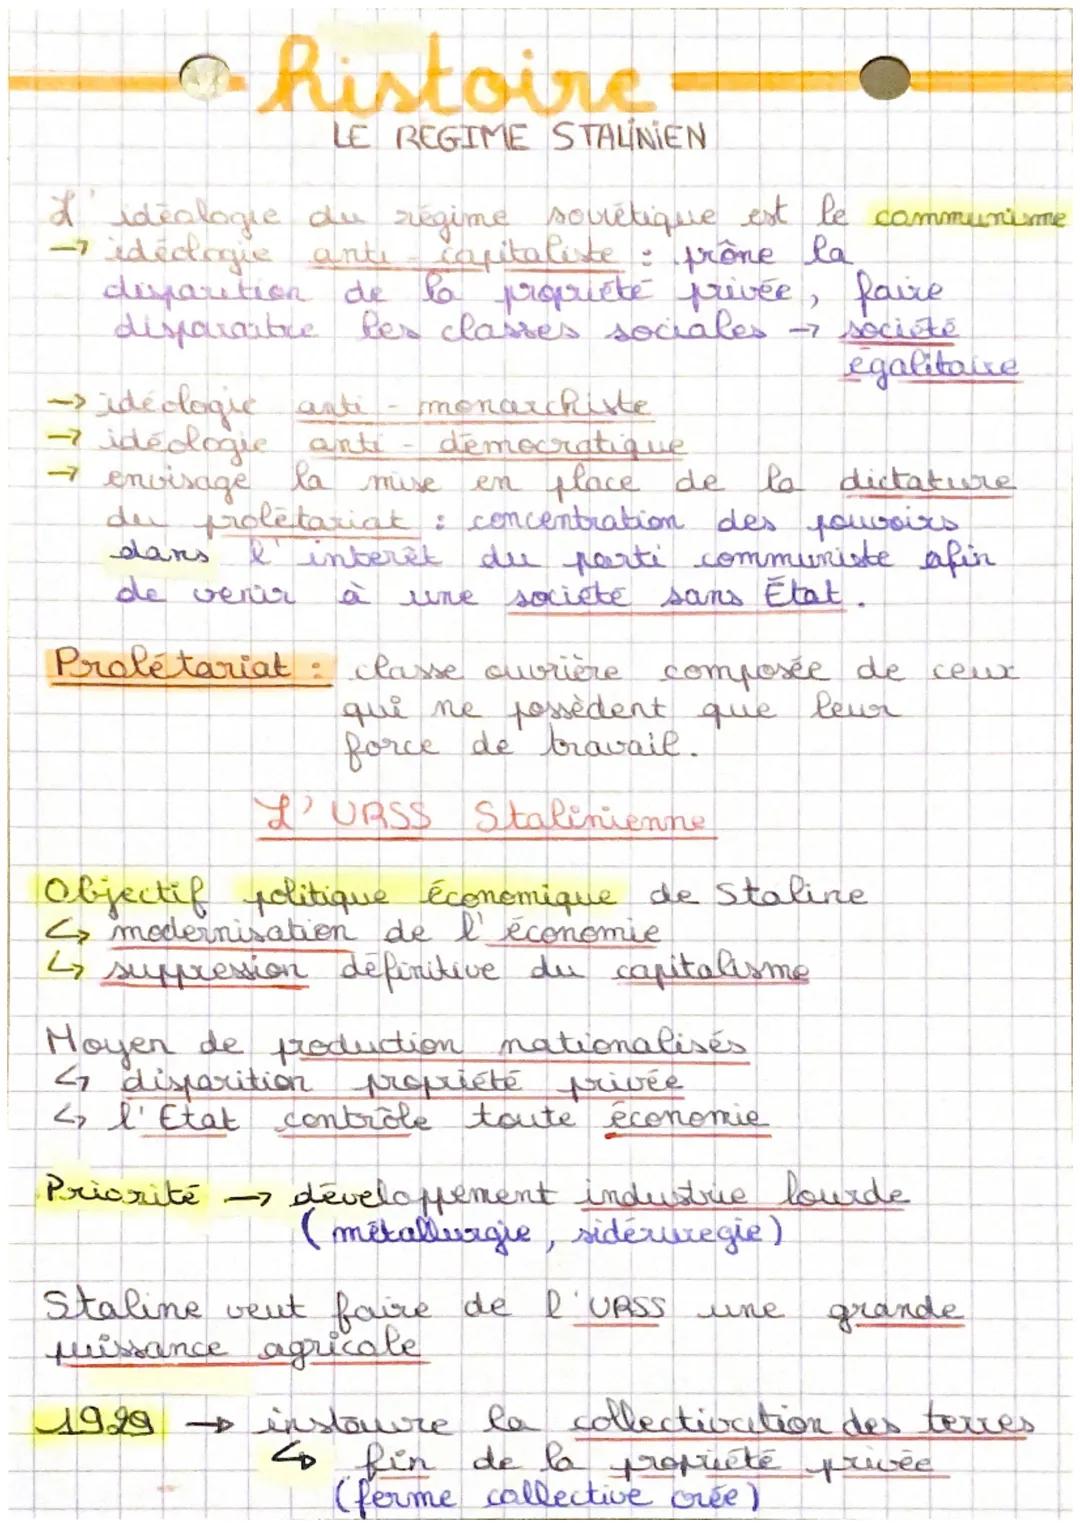 histoire
LE REGIME STALINIEN
L'idéologie du régime soviétique est le communisme
→ idéologie anti-capitaliste : prône la
disparition de la propriété privée, faire
disparaitre les classes sociales → société
égalitaire
→ idéologie anti-monarchiste
→ idéologie anti-démocratique
→ envisage la mise en place de la dictature
du prolétariat : concentration des pouvoirs
dans l'interêt du parti communiste afin
de venir à une société sans État.
Prolétariat : classe ouvrière composée de ceux
qui ne possèdent que leur
force de travail.
L'URSS Stalinienne
Objectif politique économique de Staline
↳ modernisation de l'économie
↳ suppression définitive du capitalisme
Moyen de production nationalisés
↳ disparition propriété privée
↳ l'Etat contrôle toute économie
Priorité → développement industrie lourde
(métallurgie, sidéruregie)
Staline veut faire de l'URSS une grande
puissance agricole
1929 → instaure la collectivation des terres
↳ fin de la propriété privée
(ferme collective crée)